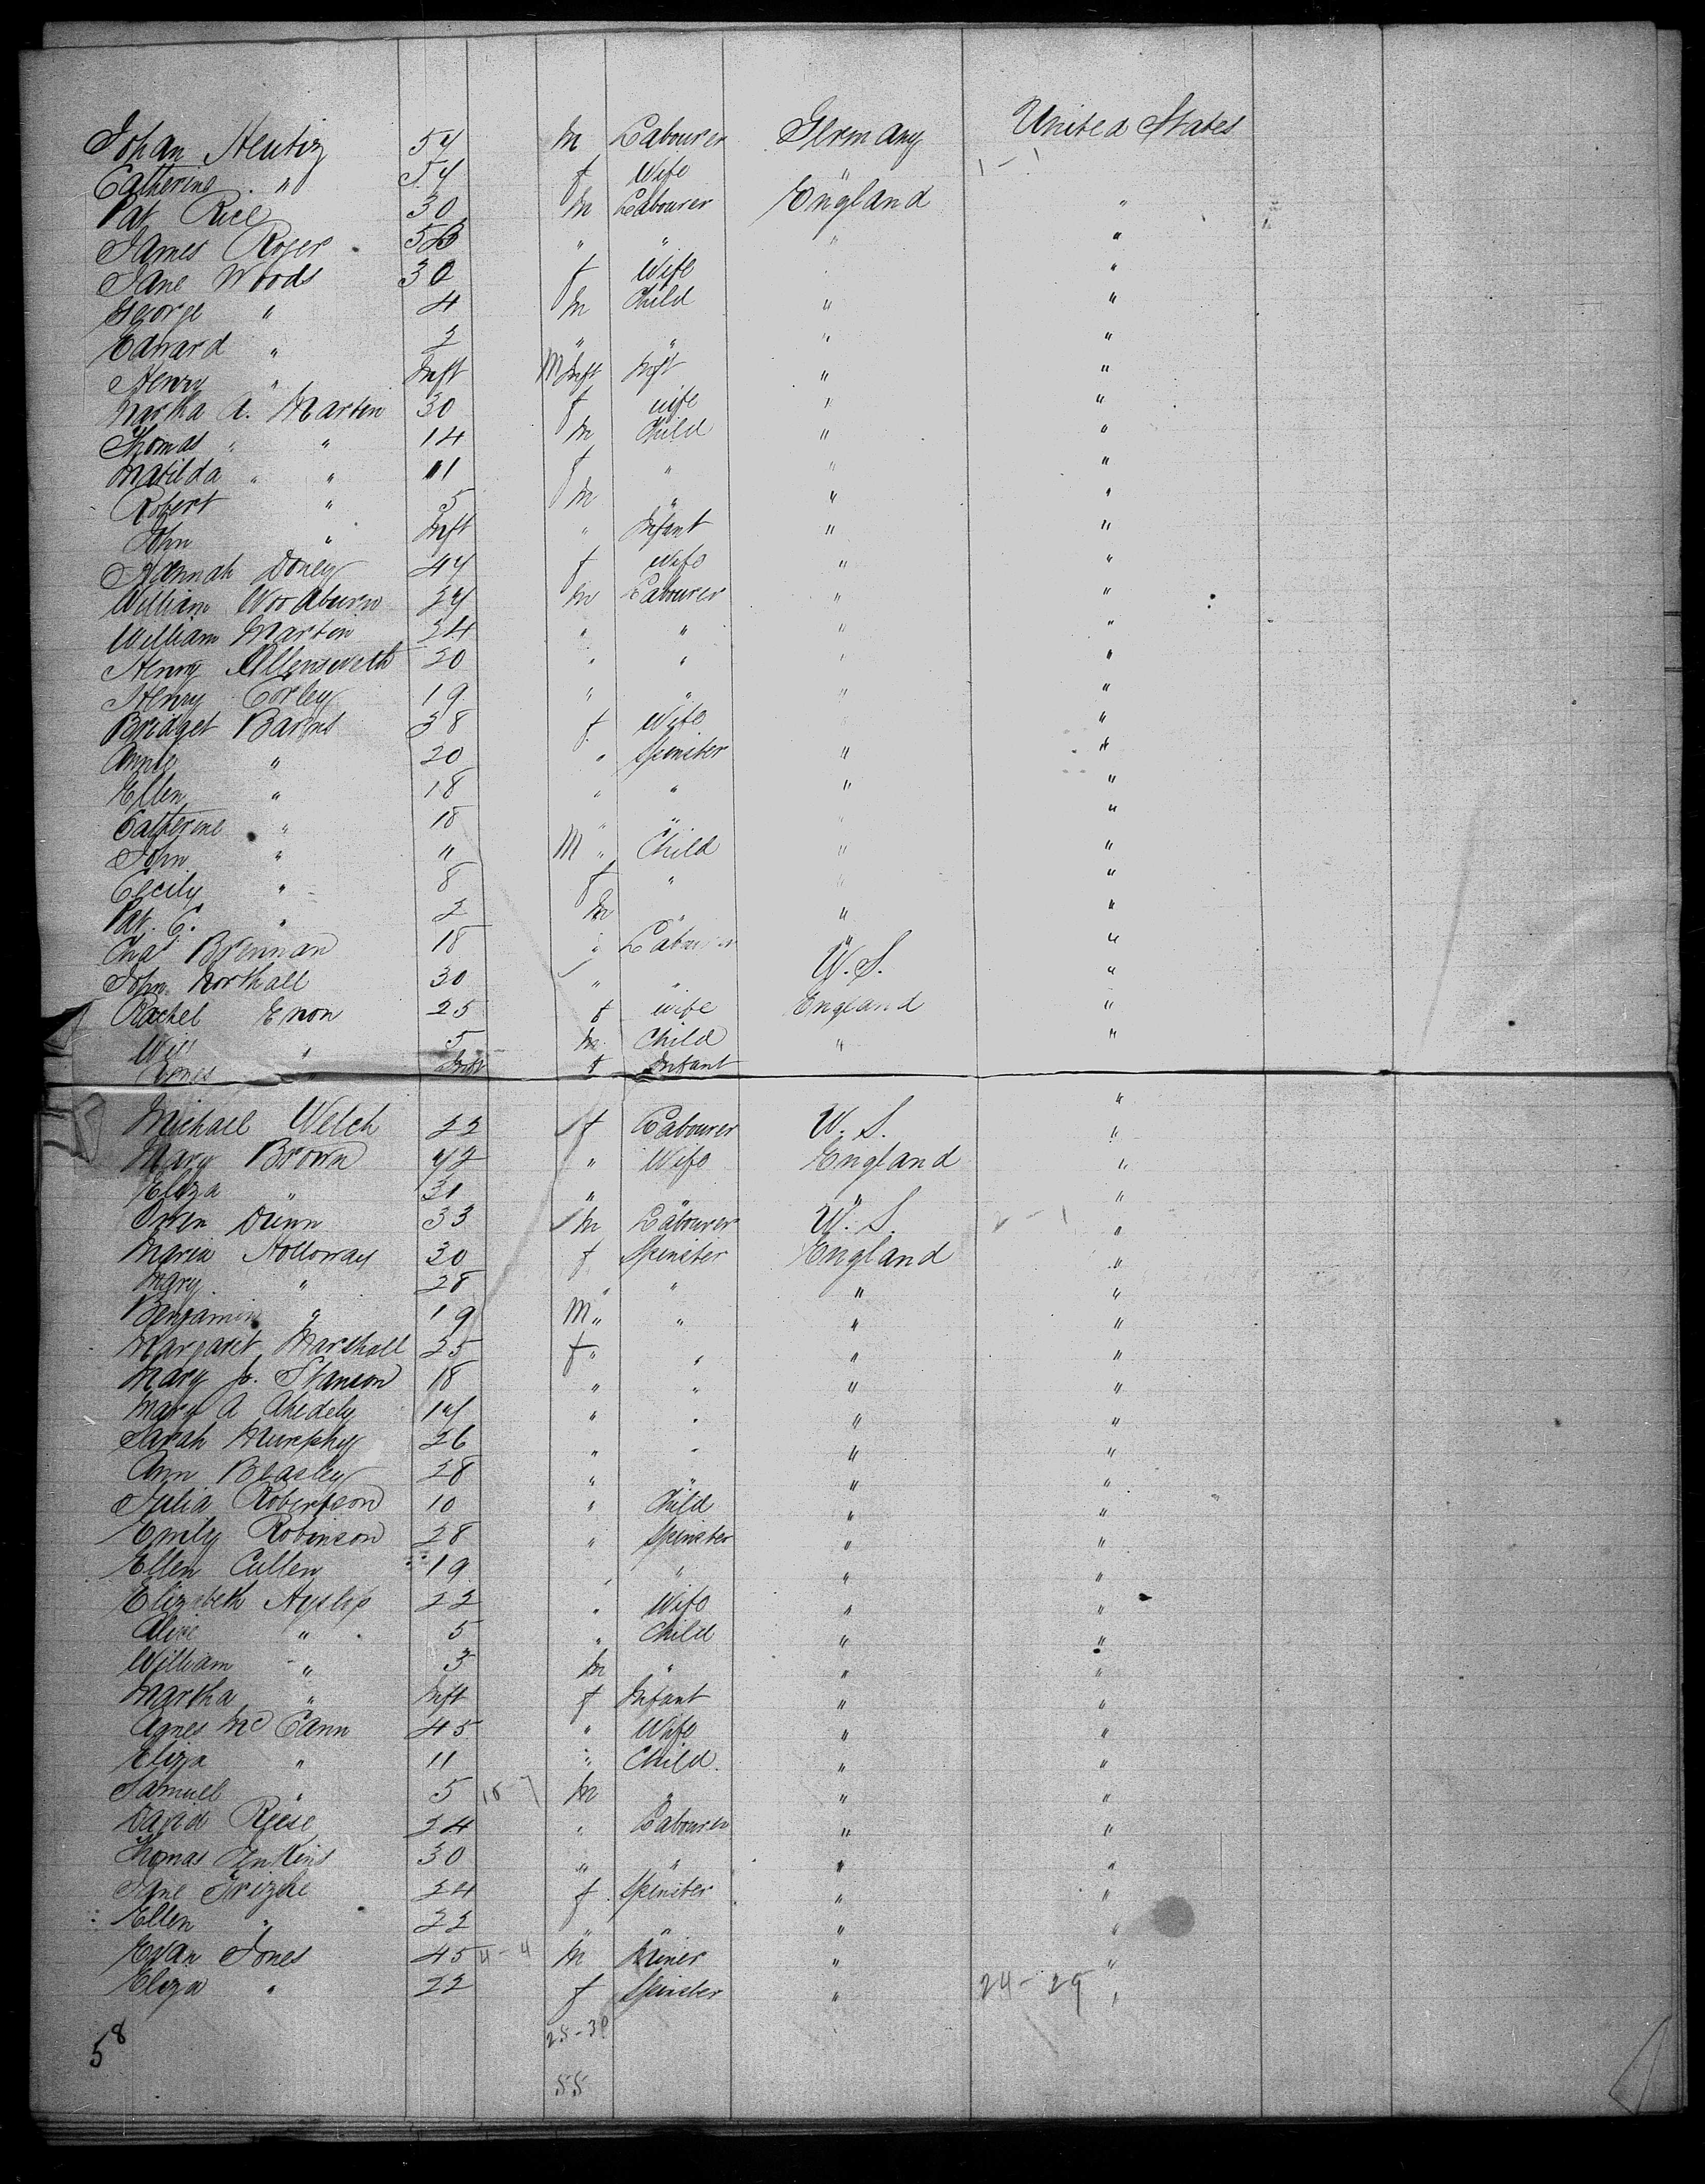 Johan Heutiz 54 m Labourer Germany United States
Catherine " 54 f Wife " 1-1
Pat Rice 30 m Labourer England "
James Roger 53 " " " "
Jane Woods 30 f Wife "
George " 4 m Child " "
Edward " 2 " " " "
Henry " Inft M Inft Inft " "
Martha A. Marten 30 f wife " "
Thomas " " 14 m Child " "
Matilda " " 11 f " " "
Robert " 5 m " " "
John " Inft " Infant " "
Hannah Doney 44 f Wife " "
William Woodburn 24 m Labourer " "
William Martin 24 " " " "
Henry 20 " " " "
Henry Corley 19 " " " "
Bridget Barns 38 f Wife "
Annie " 20 " Spinster " "
Ellen " 18 " " " "
Catherine " 18 " " " "
John " " M " Child " "
Cecily " 8 f " " "
Pat. C. " 2 m " " "
Chas Brennan 18 " Labourer " "
John Northall 30 " " U.S. "
Rachel Enon 25 f wife England "
Will " 5 m Child " "
Agnes " Inft f Infant
Michael Welch 22 f Labourer U.S. "
Mary Brown 42 " Wife England "
Eliza " 31 " " " "
Owen Dunn 33 m Labourer U.S. "
Maria Holloway 30 f Spinster England "
Mary " 28 " " " "
Benjamin " 19 M " " " "
Margaret Marshall 25 f " " " "
Mary Jo. Stanson 18 " " " "
Mary A 14 " " " "
Sarah Murphy 26 " " " "
Ann Beasley 28 " " " "
Julia Robertson 10 " Child " "
Emily Robinson 28 " Spinster " "
Ellen Cullen 19 " " " "
Elizabeth Ayslip 22 " Wife " "
Alice " 5 " Child " "
William " 3 m " " "
Martha " Inft f Infant " "
Agnes McCann 45 " Wife " "
Eliza " 11 " Child. " "
Samuel " 5 m " " "
David Reese 24 " Labourer " "
Thomas Jenkins 30 " " " "
Jane 24 f Spinster " "
Ellen " 22 " " " "
Evan Jones 45 4-4 m Miner " "
Eliza " 22 f Spinster " 24-29 "
58 28-30
55